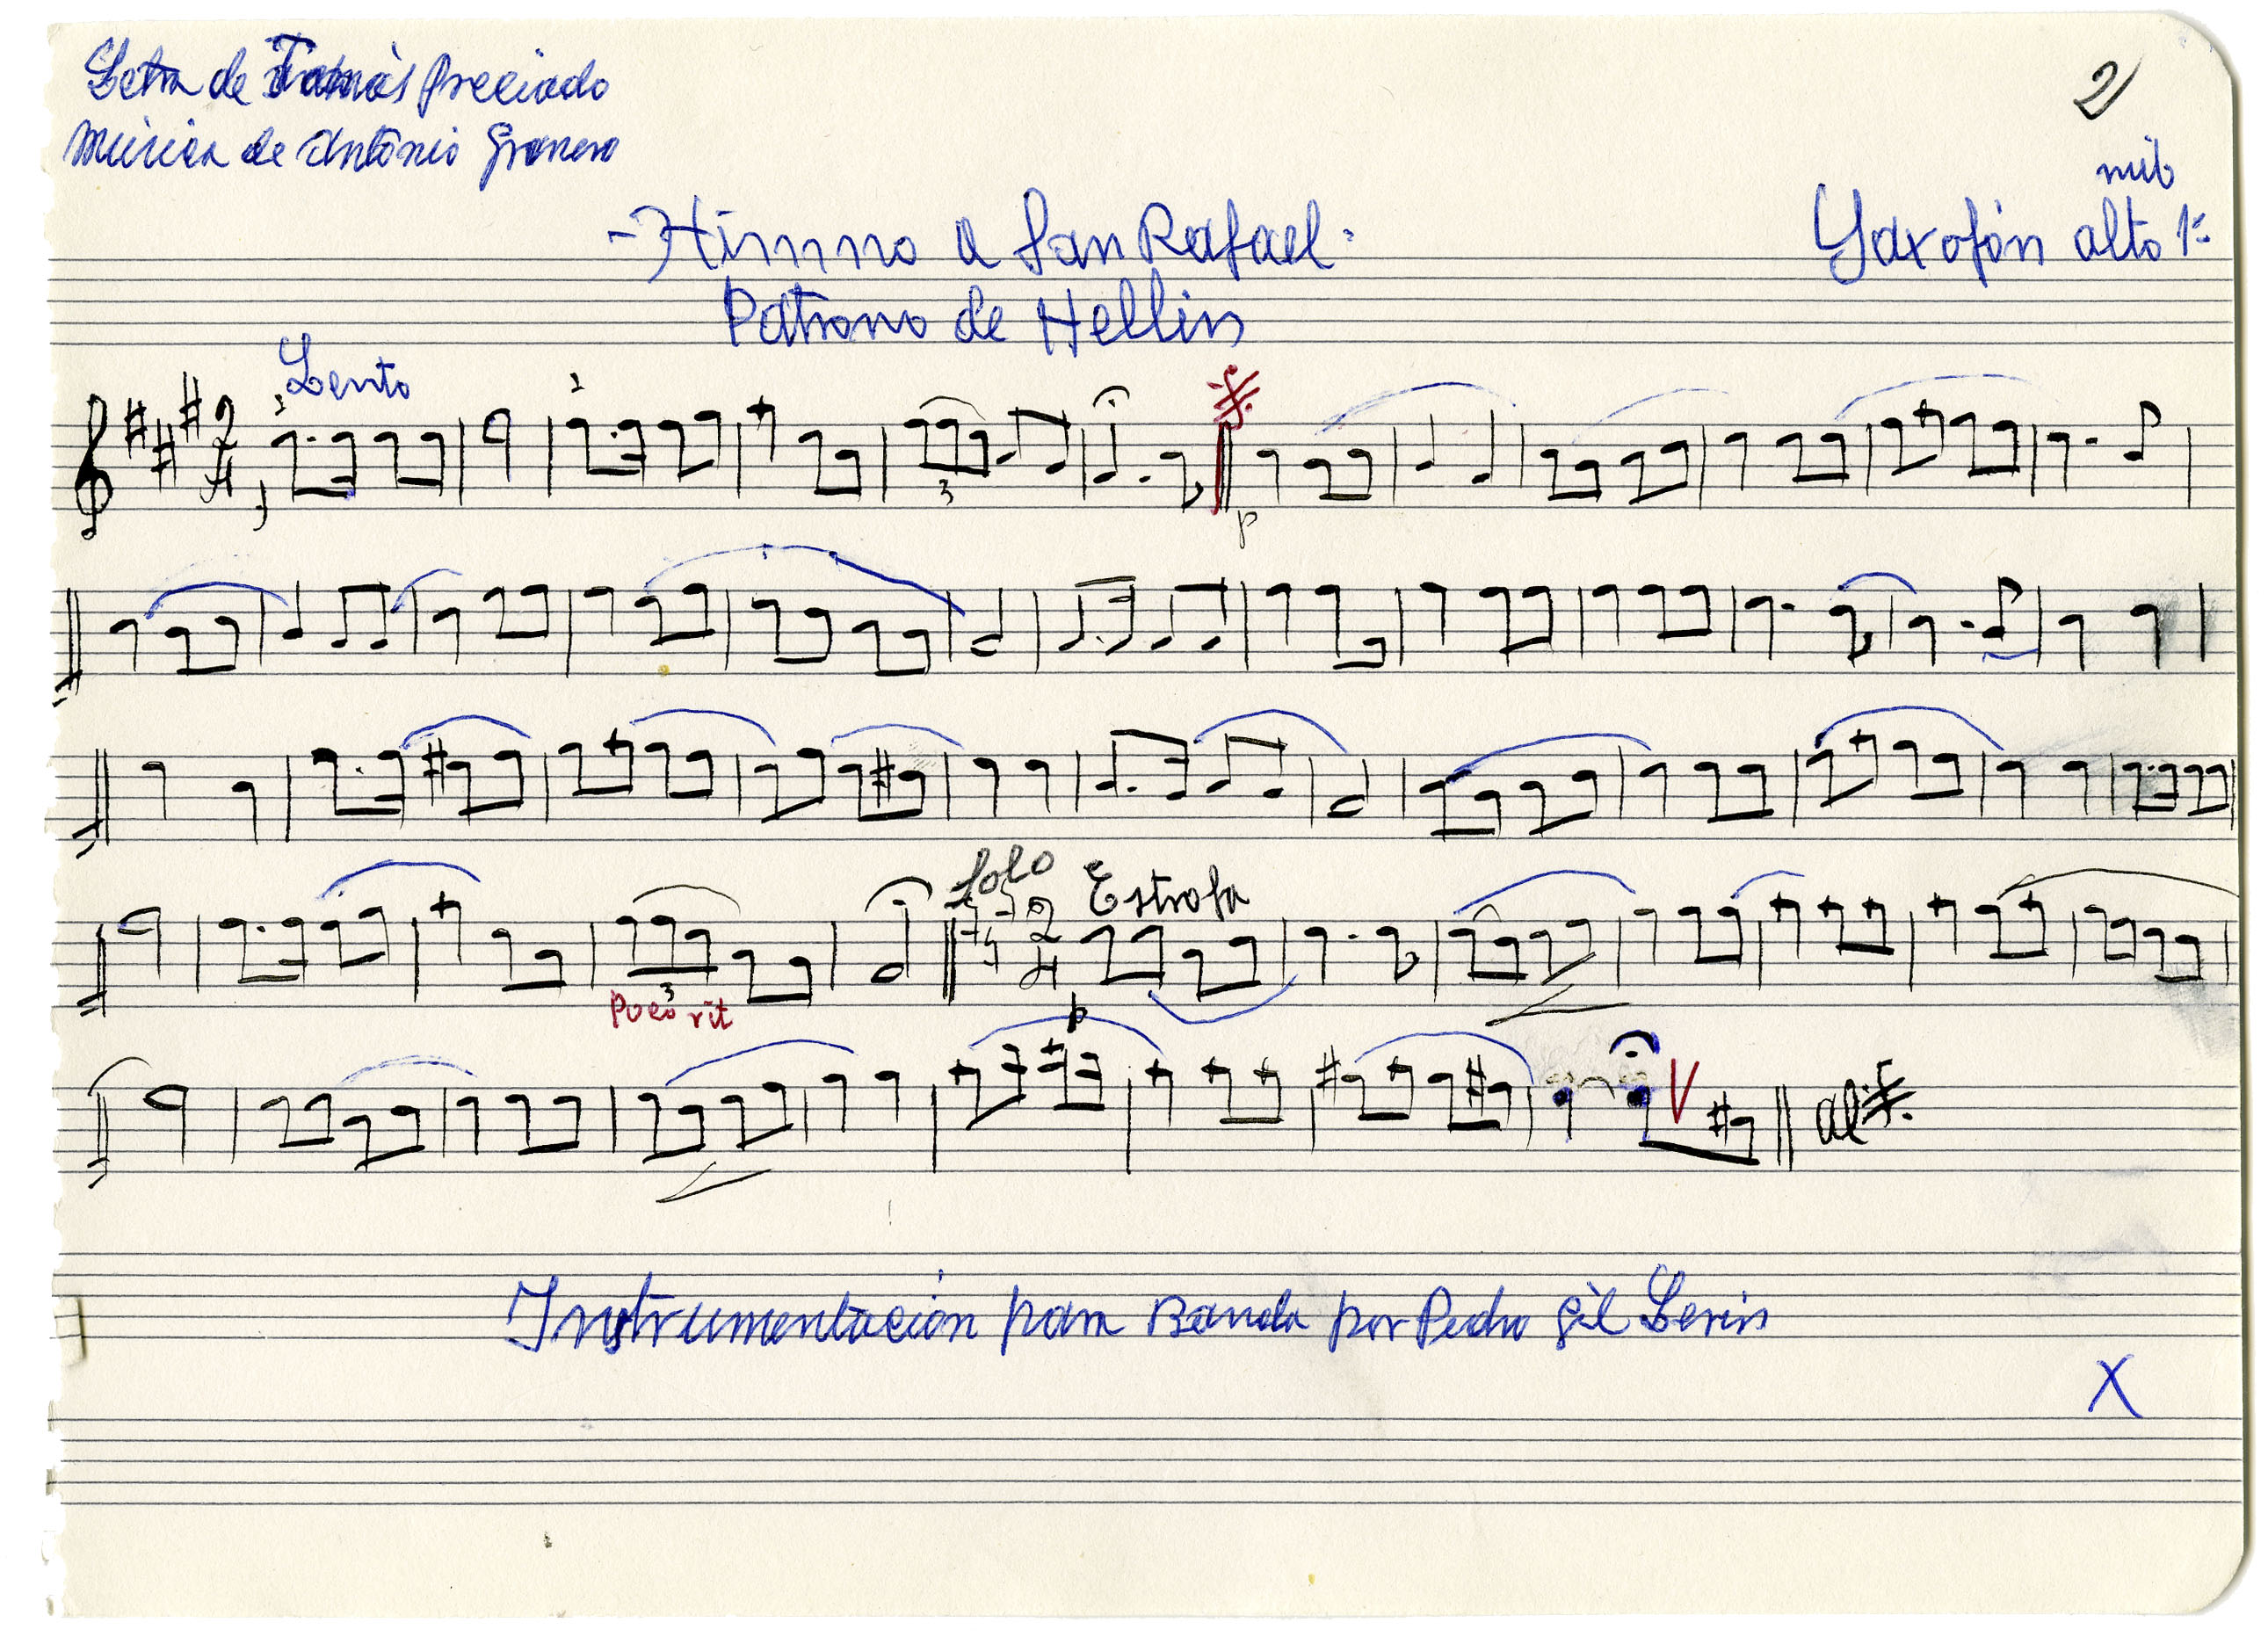 Letra de Tomàs Preciado
Mùsica de Antònio Granero
2
mib
Saxofón alto 1º
- Himno a San Rafael -
Patrono de Hellin
Lento
2
4
3
p
Solo
2
4
Estrofa
3
Poco rit
p
al
Instrumentación para Banda por Pedro Gil Lerin
X